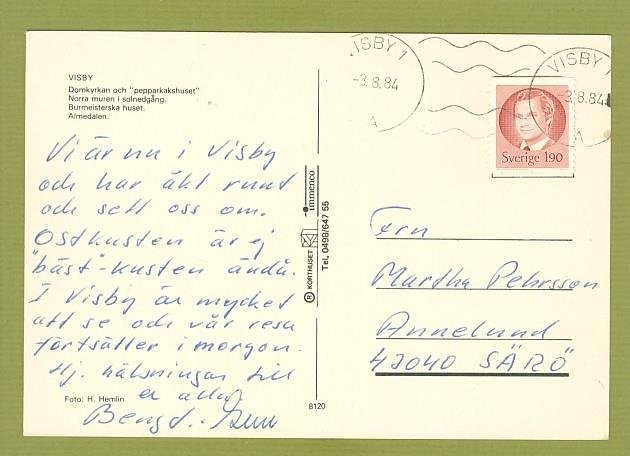 VISBY
Domkyrkan och "pepparkakshuset"
Norra muren i solnedgång.
Burmeisterska huset.
Almedalen.
Vi är nu i Visby
och har åkt runt
och sett oss om.
Ostkusten är ej
"bäst"-kusten ändå.
I Visby är mycket
att se och vår resa
fortsätter i morgon.
Hj. hälsningar till
er alla
Bengt.
Foto: H. Hemlin
8120
® KORTHUSET immenco
Tel. 0498/647 55
VISBY 1
-3.8.84
A
VISBY 1
-3.8.84
A
Sverige 190
Fru
Martha Pehrsson
Annelund
43040 SÄRÖ